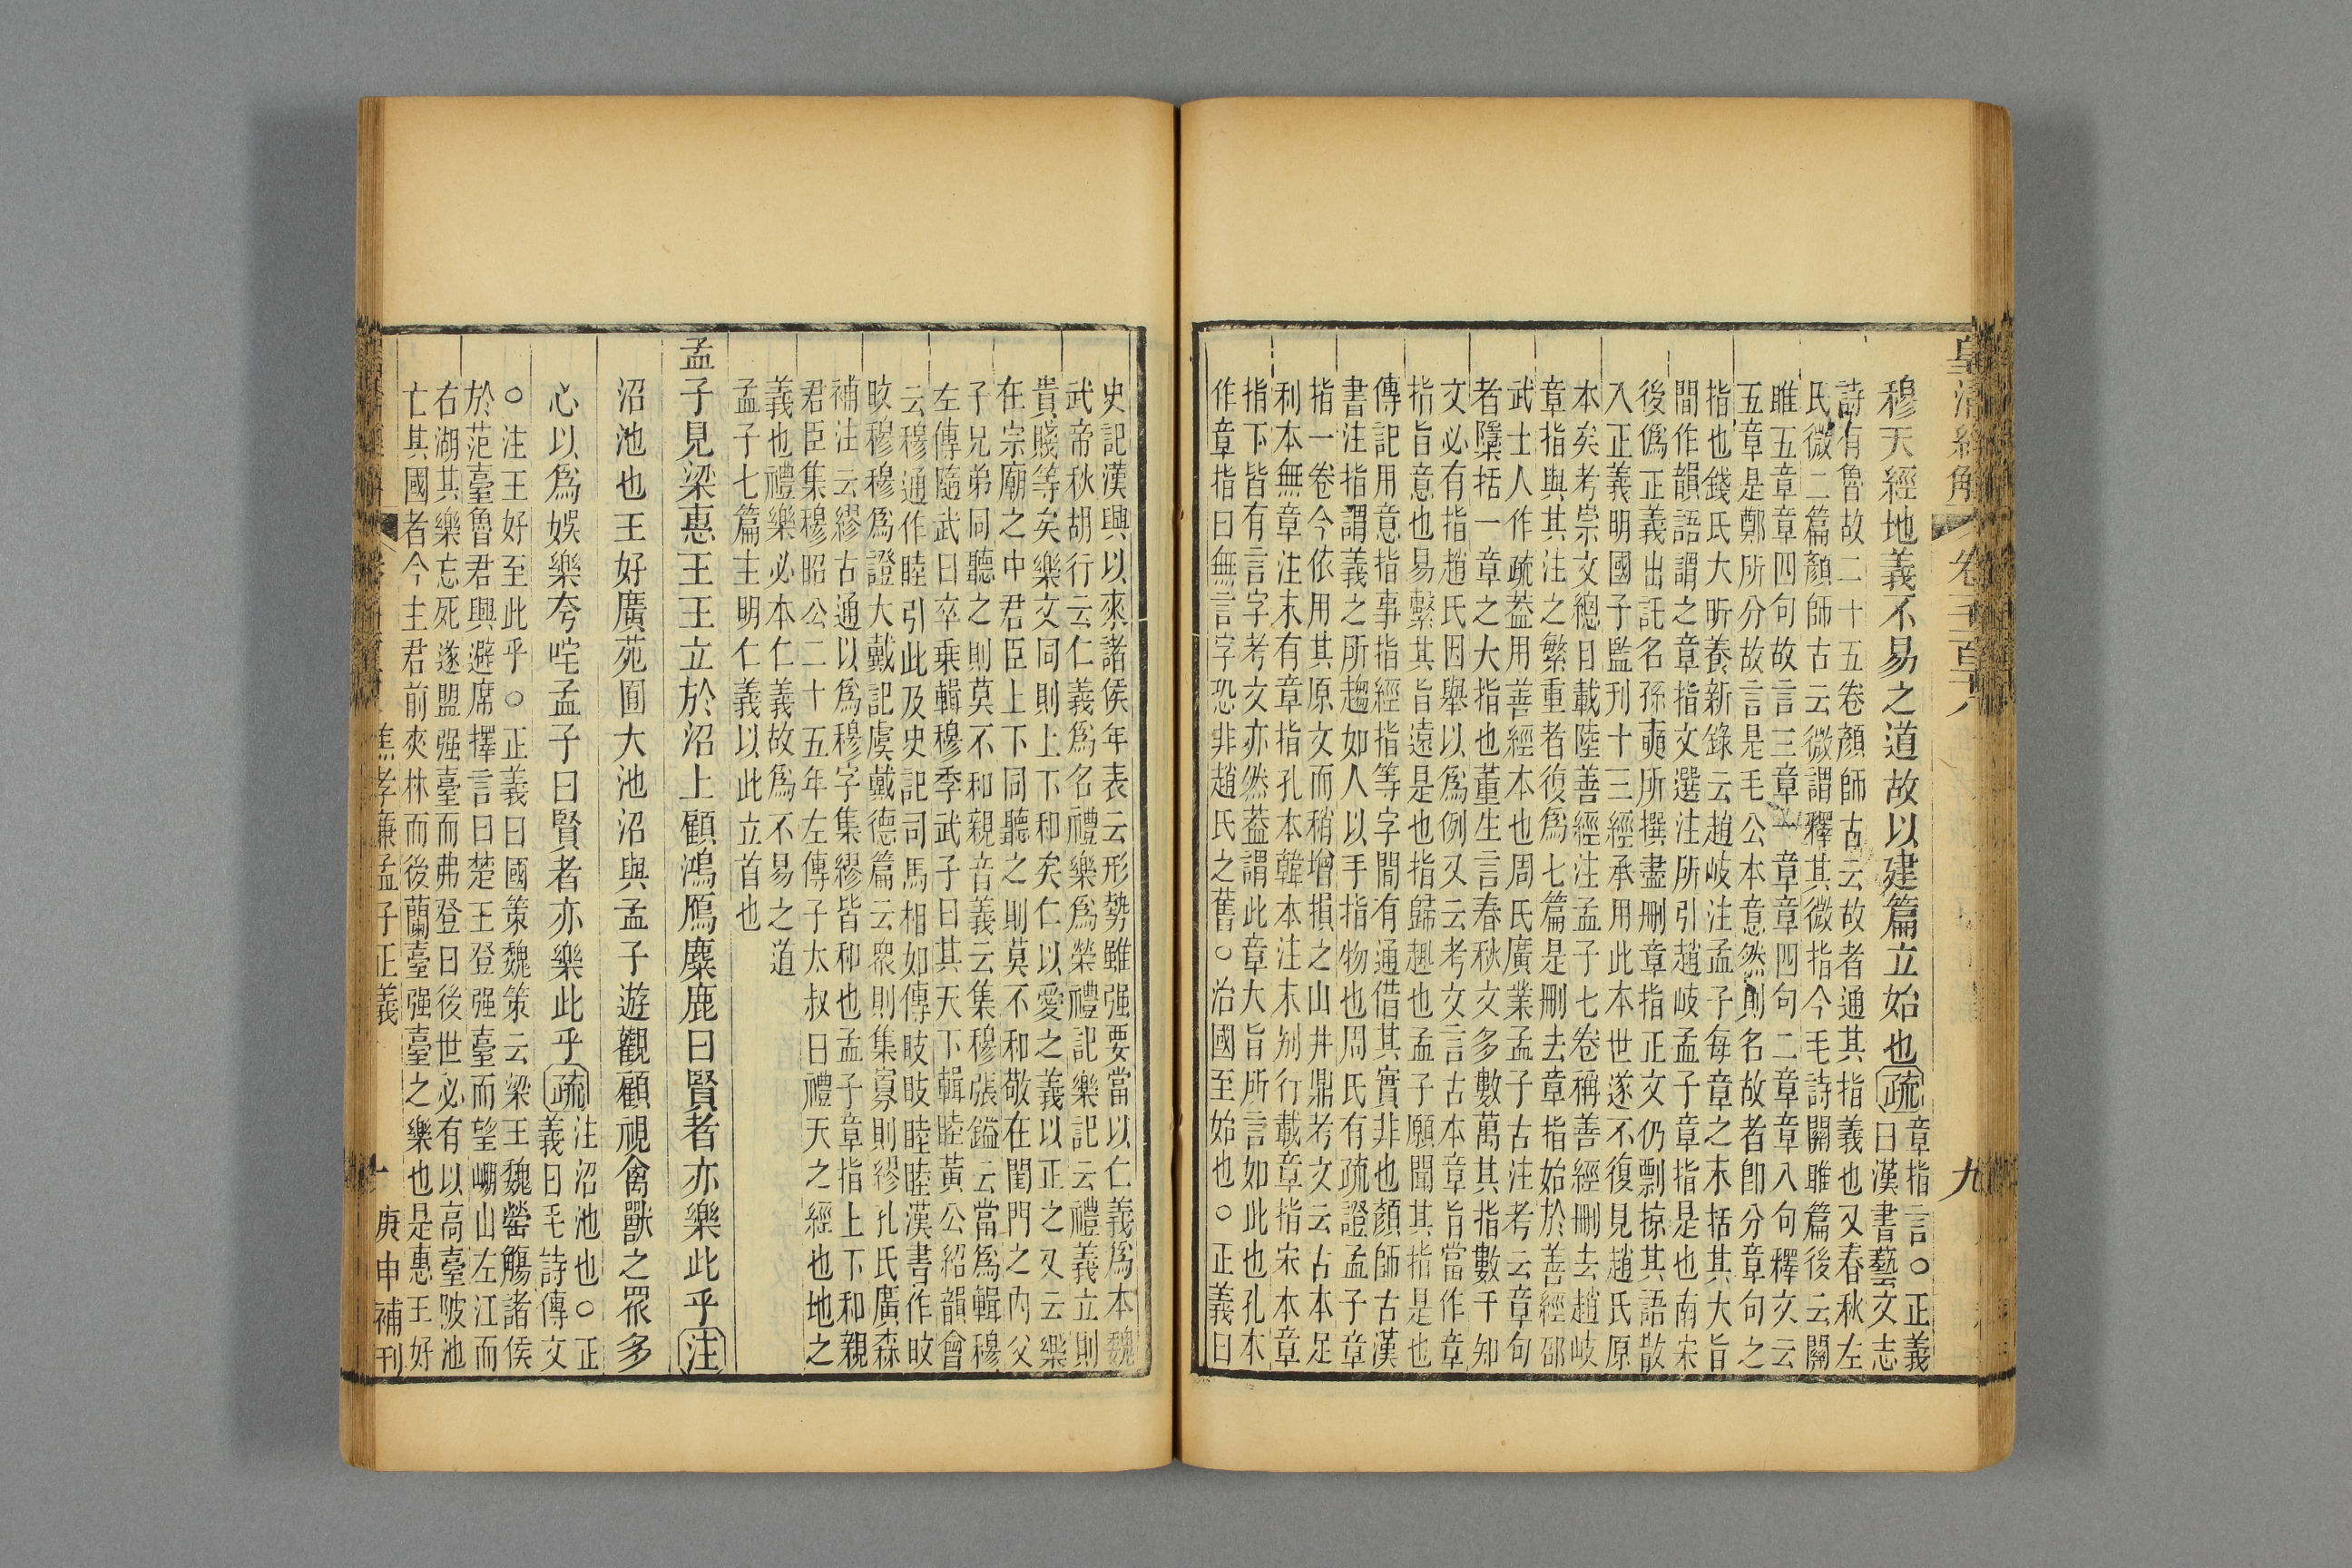 皇清經解
卷千一百十八
九
穆天經地義不易之道故以建篇立始也疏
章指言○正義
曰漢書藝文志
詩有魯故二十五卷顏師古云故者通其指義也又春秋左
氏微二篇顏師古云微謂釋其微指今毛詩關雎篇後云關
雎五章章四句故言三章一章章四句二章章八句釋文云
五章是鄭所分故言是毛公本意然則名故者卽分章句之
指也錢氏大昕養新錄云趙岐注孟子每章之末括其大旨
間作韻語謂之章指文選注所引趙岐孟子章指是也南宋
後僞正義出託名孫奭所撰盡刪章指正文仍剽掠其語散
入正義明國子監刊十三經承用此本世遂不復見趙氏原
本矣考崇文總目載陸善經注孟子七卷稱善經刪去趙岐
章指與其注之繁重者復爲七篇是刪去章指始於善經邵
武士人作疏葢用善經本也周氏廣業孟子古注考云章句
者檃括一章之大指也董生言春秋文多數萬其指數千知
文必有指趙氏因舉以爲例又云考文言古本章旨當作章
指旨意也易繫其旨遠是也指歸趣也孟子願聞其指是也
傳記用意指事指經指等字閒有通借其實非也顏師古漢
書注指謂義之所趨如人以手指物也周氏有疏證孟子章
指一卷今依用其原文而稍增損之山井鼎考文云古本足
利本無章注末有章指孔本韓本注末別行載章指宋本章
指下皆有言字考文亦然葢謂此章大旨所言如此也孔本
作章指曰無言字恐非趙氏之舊○治國至始也○正義曰
史記漢興以來諸侯年表云形勢雖强要當以仁義爲本魏
武帝秋胡行云仁義爲名禮樂爲榮禮記樂記云禮義立則
貴賤等矣樂文同則上下和矣仁以愛之義以正之又云樂
在宗廟之中君臣上下同聽之則莫不和敬在閨門之內父
子兄弟同聽之則莫不和親音義云集穆張鎰云當爲輯穆
左傳隨武曰卒乗輯穆季武子曰其天下輯睦黃公紹韻會
云穆通作睦引此及史記司馬相如傳㫛㫛睦睦漢書作㫛
㫛穆穆爲證大戴記虞戴德篇云衆則集寡則繆孔氏廣森
補注云繆古通以爲穆字集繆皆和也孟子章指上下和親
君臣集穆昭公二十五年左傳子太叔曰禮天之經也地之
義也禮樂必本仁義故爲不易之道
孟子七篇主明仁義以此立首也
孟子見梁惠王王立於沼上顧鴻鴈麋鹿曰賢者亦樂此乎注
沼池也王好廣苑囿大池沼與孟子遊觀顧視禽獸之眾多
心以爲娛樂夸咤孟子曰賢者亦樂此乎疏
注沼池也○正
義曰毛詩傳文
○注王好至此乎○正義曰國策魏策云梁王魏罃觴諸侯
於范臺魯君興避席擇言曰楚王登强臺而望崩山左江而
右湖其樂忘死遂盟强臺而弗登曰後世必有以高臺陂池
亡其國者今主君前夾林而後蘭臺强臺之樂也是惠王好
焦孝廉孟子正義
十
庚申補刊